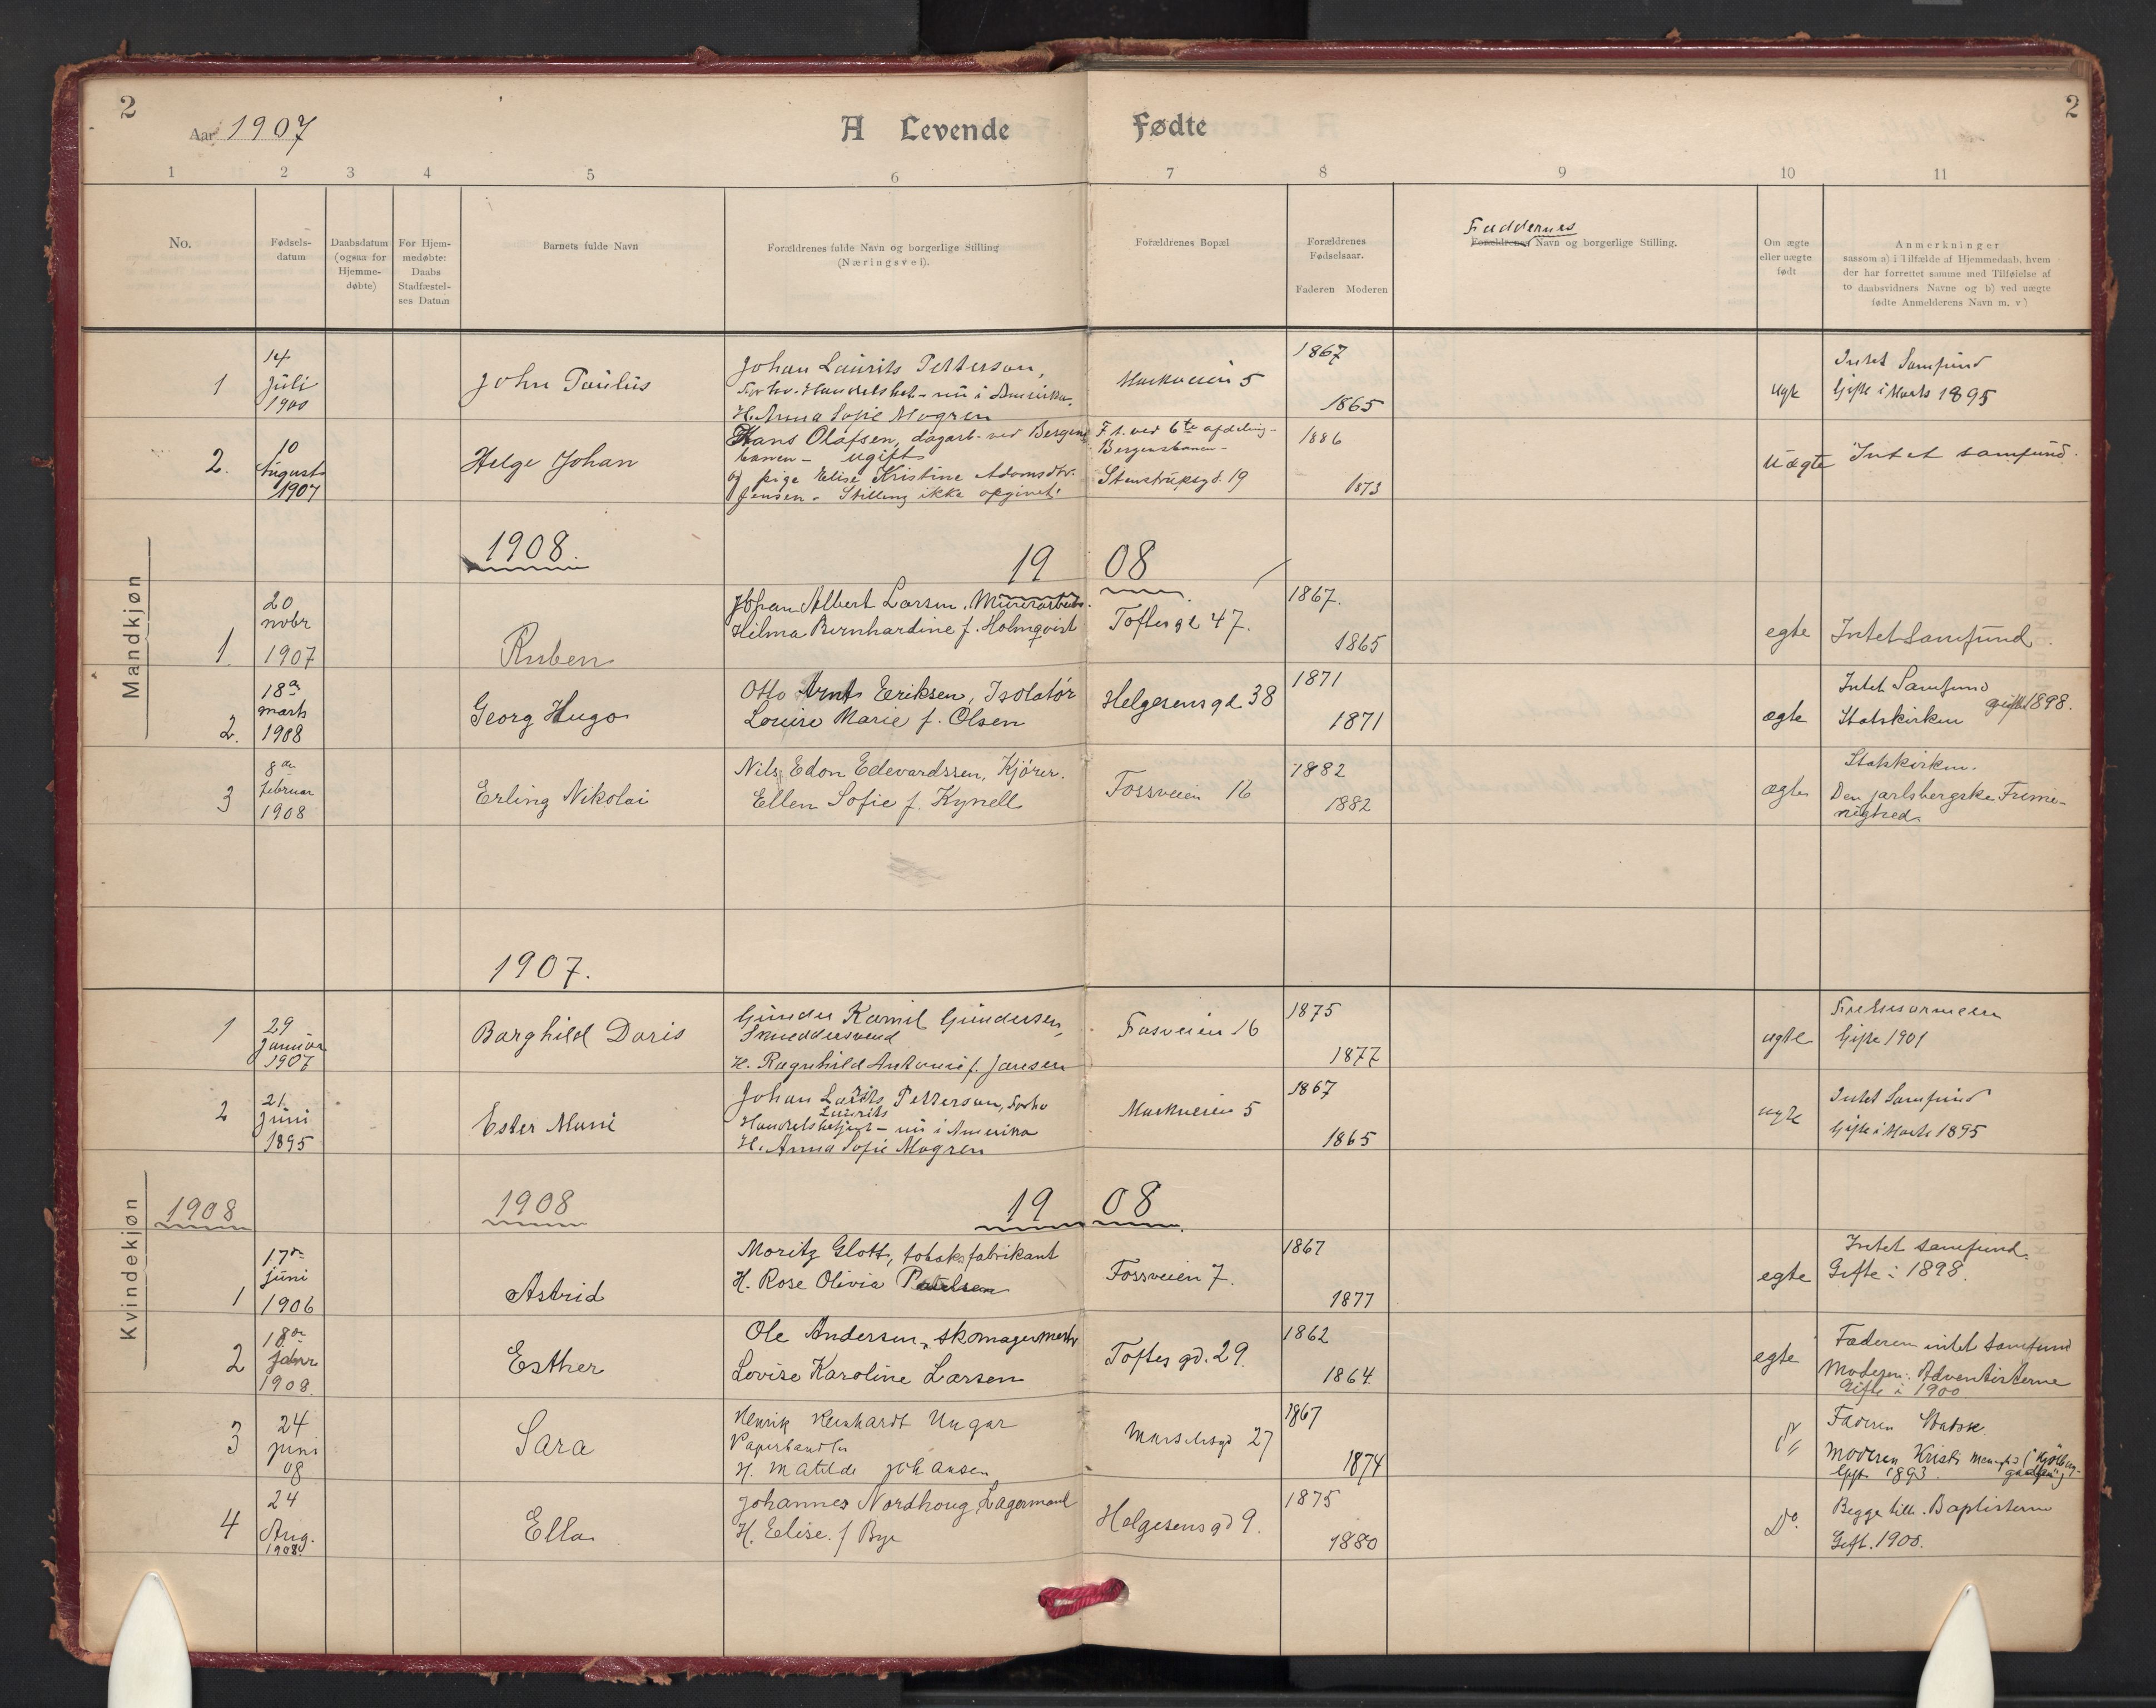 2
Aar 1907
A Levende Fødte
2
1 2 3 4 5 6 7 8 9 10 11
No.
Fødsels-
datum
Daabsdatum
(ogsaa for
Hjemme-
døbte)
For Hjem-
medøbte:
Daabs
Stadfæstel-
ses Datum
Barnets fulde Navn
Forældrenes fulde Navn og borgerlige Stilling
(Næringsvei).
Forældrenes Bopæl
Forældrenes
Fødselsaar.
Faderen Moderen
Faddernes
Forældrenes Navn og borgerlige Stilling.
Om ægte
eller uægte
født
Anmerkninger
sassom a) i Tilfælde af Hjemmedaab, hvem
der har forrettet samme med Tilføielse af
to daabsvidners Navne og b) ved uægte
fødte Anmelderens Navn m. v)
Mandkjøn
1
14
Juli
1900
John Paulus
Johan Laurits Petterson,
Handelsbet - nu i Amerika.
H. Anna Sofie Mogren
Markveien 5
1867
1865
ægte
Intet Samfund
Gifte i Marts 1895
2.
10
August
1907
Helge Johan
Hans Olafsen, dagarb. ved Bergens
banen - ugift
og pige Elise Kristine Adamsdtr.
Jensen - Stilling ikke opgivet.
F. 1. ved 6te afdeling -
Bergensbanen -
Stenstrupsgd. 19
1886
1873
Uægte
Intet samfund.
1908.
19 08
1
20
nobr
1907
Ruben
Johan Albert Larsen, Murerarbeider.
Hilma Bernhardine f. Holmqvist
Toftesgd 47.
1867.
1865
egte
Intet Samfund.
2.
18de
marts
1908
Georg Hugo
Otto Arnt Eriksen, Isolatør
Louise Marie f. Olsen
Helgesensgd. 38
1871
1871
ægte
Intet Samfund
Statskirken gifte 1898.
3
8de
februar
1908
Erling Nikolai
Nils Edon Edevardssen, Kjører.
Ellen Sofie f. Kynell
Fossveien 16
1882
1882
ægte
Statskirken.
Den jarlsbergske Frime-
nighed.
1907.
Kvindekjøn
1
29
Januar
1907
Borghild Doris
Gunder Kamil Gundersen,
Skreddersvend
H. Ragnhild Antonie f. Jansen
Fosveien 16
1875
1877
ægte
Frelsesarmeen
Gifte 1901
2
21
Juni
1895
Ester Marie
Johan Laurits Petterson,
Laurits
Handelsbetjent - nu i Amerika
H. Anna Sofie Mogren
Markveien 5
1867
1865
ægte
Intet Samfund
Gifte i Marts 1895
1908
1908
19 08
1
17de
juni
1906
Astrid
Moritz Glott, tobaksfabrikant
H. Rose Olivia Paulsen
Fossveien 7.
1867
1877
egte
Intet samfund.
Gifte i 1898.
2
18de
1908.
Esther
Ole Andersen, skomagermester
Lovise Karoline Larsen
Toftes gd. 29.
1862
1864.
egte
Faderen intet samfund
Moderen: Adventisterne
Gifte i 1900
3
24
juni
08
Sara
Henrik Reinhardt Ungar
Papirhandler
H. Matilde Johansen
27
1867
1874
Faderen Statsk.
Moderen Kristi Menighed
Gift 1893.
4
24
Aug.
1908
Ella
Johannes Nordhoug, Lagermand
H. Elise. f Bye
Helgesens gd 9.
1875
1880
Do.
Begge tilh. Baptisterne
Gift. 1900.